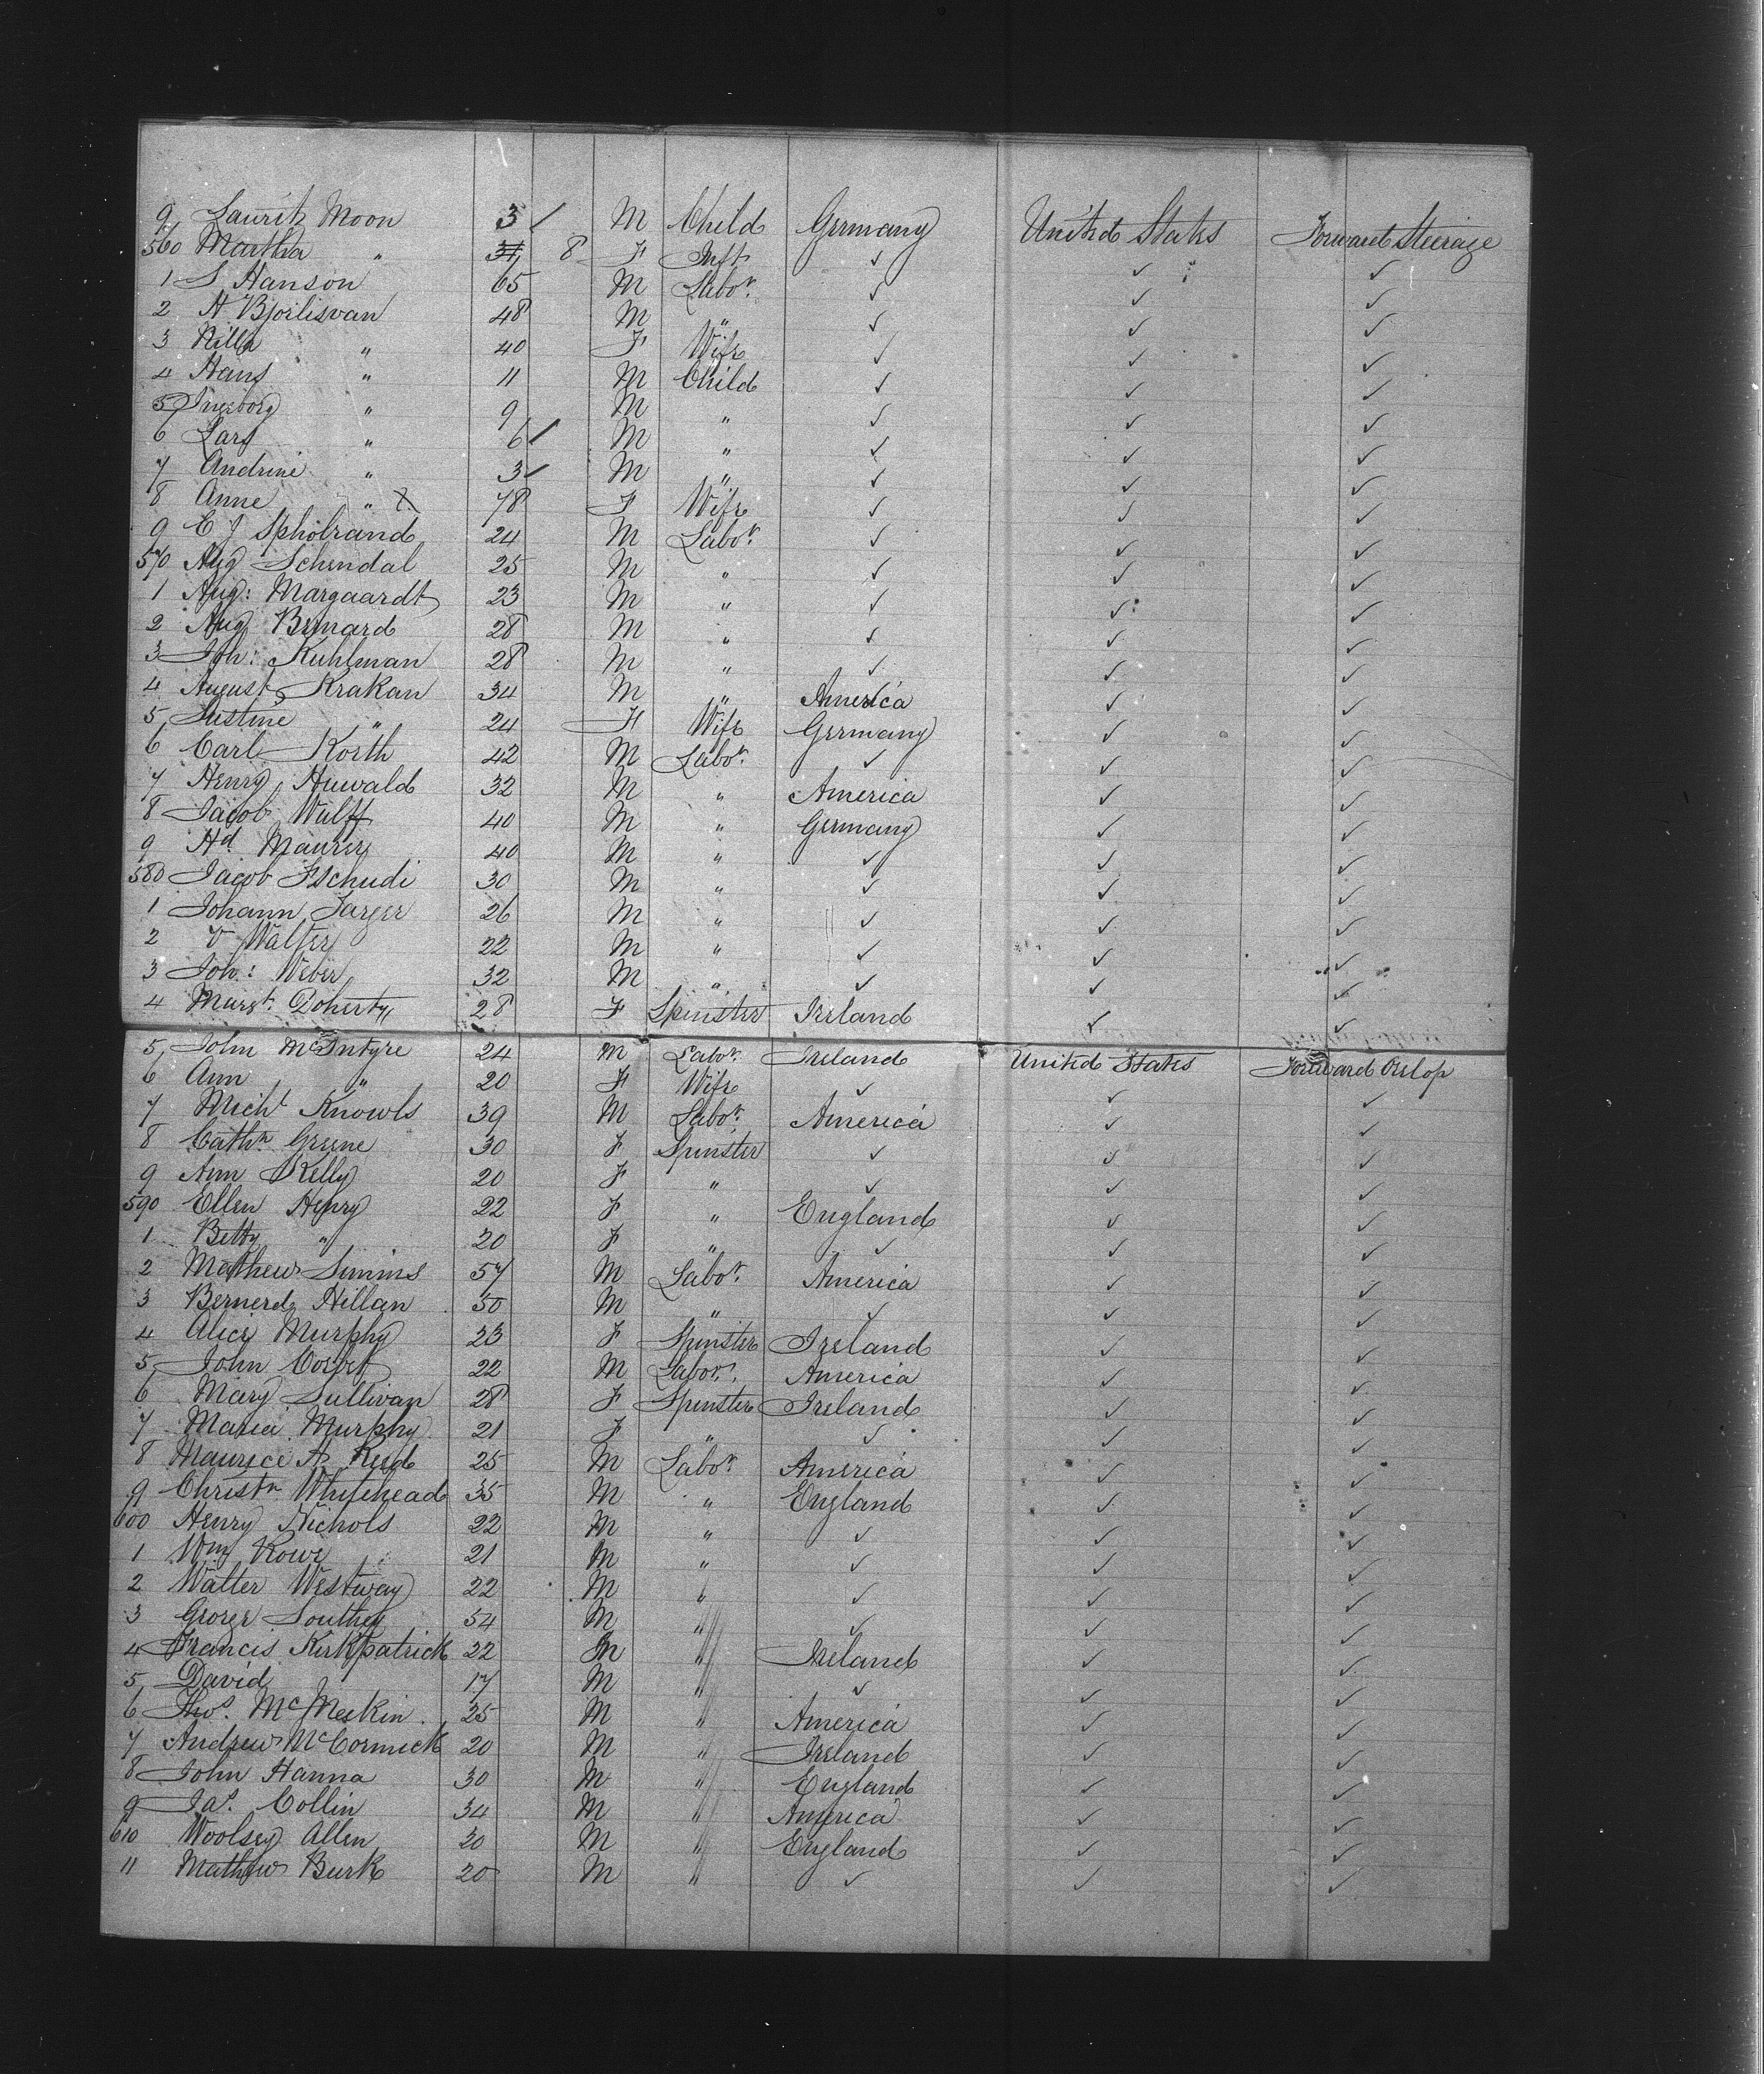 9 Lauritz Moon 3 / M Child Germany United States Forward Steerage
560 Martha " 8 F Inft ✓ ✓ ✓
1 S Hanson 65 M Labor. ✓ ✓ ✓
2 H Bjorlisvan 48 M " ✓ ✓ ✓
3 Nilla " 40 F Wife ✓ ✓ ✓
4 Hans " 11 M Child ✓ ✓ ✓
5 Ingeborg " 9 M " ✓ ✓ ✓
6 Lars " 6 / M " ✓ ✓ ✓
7 Andrine " 3 / M " ✓ ✓ ✓
8 Anne " 78 F Wife ✓ ✓ ✓
9 E J Spholrand 24 M Labor. ✓ ✓ ✓
570 Aug Schendal 25 M " ✓ ✓ ✓
1 Aug: Margaardt 23 M " ✓ ✓ ✓
2 Aug Bernard 28 M " ✓ ✓ ✓
3 Joh: Kuhlman 28 M " ✓ ✓ ✓
4 August Krakan 34 M " America ✓ ✓
5 Justine " 24 F Wife Germany ✓ ✓
6 Carl Korth 42 M Labor. ✓ ✓ ✓
7 Henry Huwald 32 M " America ✓ ✓
8 Jacob Wulff 40 M " Germany ✓ ✓
9 Hd Maurer 40 M " ✓ ✓ ✓
580 Jacob Fschudi 30 M " ✓ ✓ ✓
1 Johann Jarger 26 M " ✓ ✓ ✓
2 V Walter 22 M " ✓ ✓ ✓
3 Joh: Weber 32 M " ✓ ✓ ✓
4 Margt. Doherty 28 F Spinster Ireland ✓ ✓
5 John McIntyre 24 M Labor. Ireland United States Forward Orlop
6 Ann " 20 F Wife ✓ ✓ ✓
7 Michl Knowls 39 M Labor. America ✓ ✓
8 Cathn Greene 30 F Spinster ✓ ✓ ✓
9 Ann Kelly 20 F " ✓ ✓ ✓
590 Ellen Henry 22 F " England ✓ ✓
1 Betty " 20 F " ✓ ✓ ✓
2 Mathew Simms 57 M Labor. America ✓ ✓
3 Bernerd Hillan 50 M " ✓ ✓ ✓
4 Alice Murphy 23 F Spinster Ireland ✓ ✓
5 John Corbet 22 M Labor. America ✓ ✓
6 Mary Sullivan 28 F Spinster Ireland ✓ ✓
7 Maria Murphy 21 F " ✓ ✓ ✓
8 Maurice A Reid 25 M Labor. America ✓ ✓
9 Christn Whitehead 35 M " England ✓ ✓
600 Henry Nichols 22 M " ✓ ✓ ✓
1 Wm Rowe 21 M " ✓ ✓ ✓
2 Walter Westway 22 M " ✓ ✓ ✓
3 George Southey 54 M " ✓ ✓ ✓
4 Francis Kirkpatrick 22 M " Ireland ✓ ✓
5 David 17 M " ✓ ✓ ✓
6 Thos. McMeekin 25 M " America ✓ ✓
7 Andrew McCormick 20 M " Ireland ✓ ✓
8 John Hanna 30 M " England ✓ ✓
9 Jas. Collin 34 M " America ✓ ✓
610 Woolsey Allen 30 M " England ✓ ✓
11 Mathew Burk 20 M " ✓ ✓ ✓